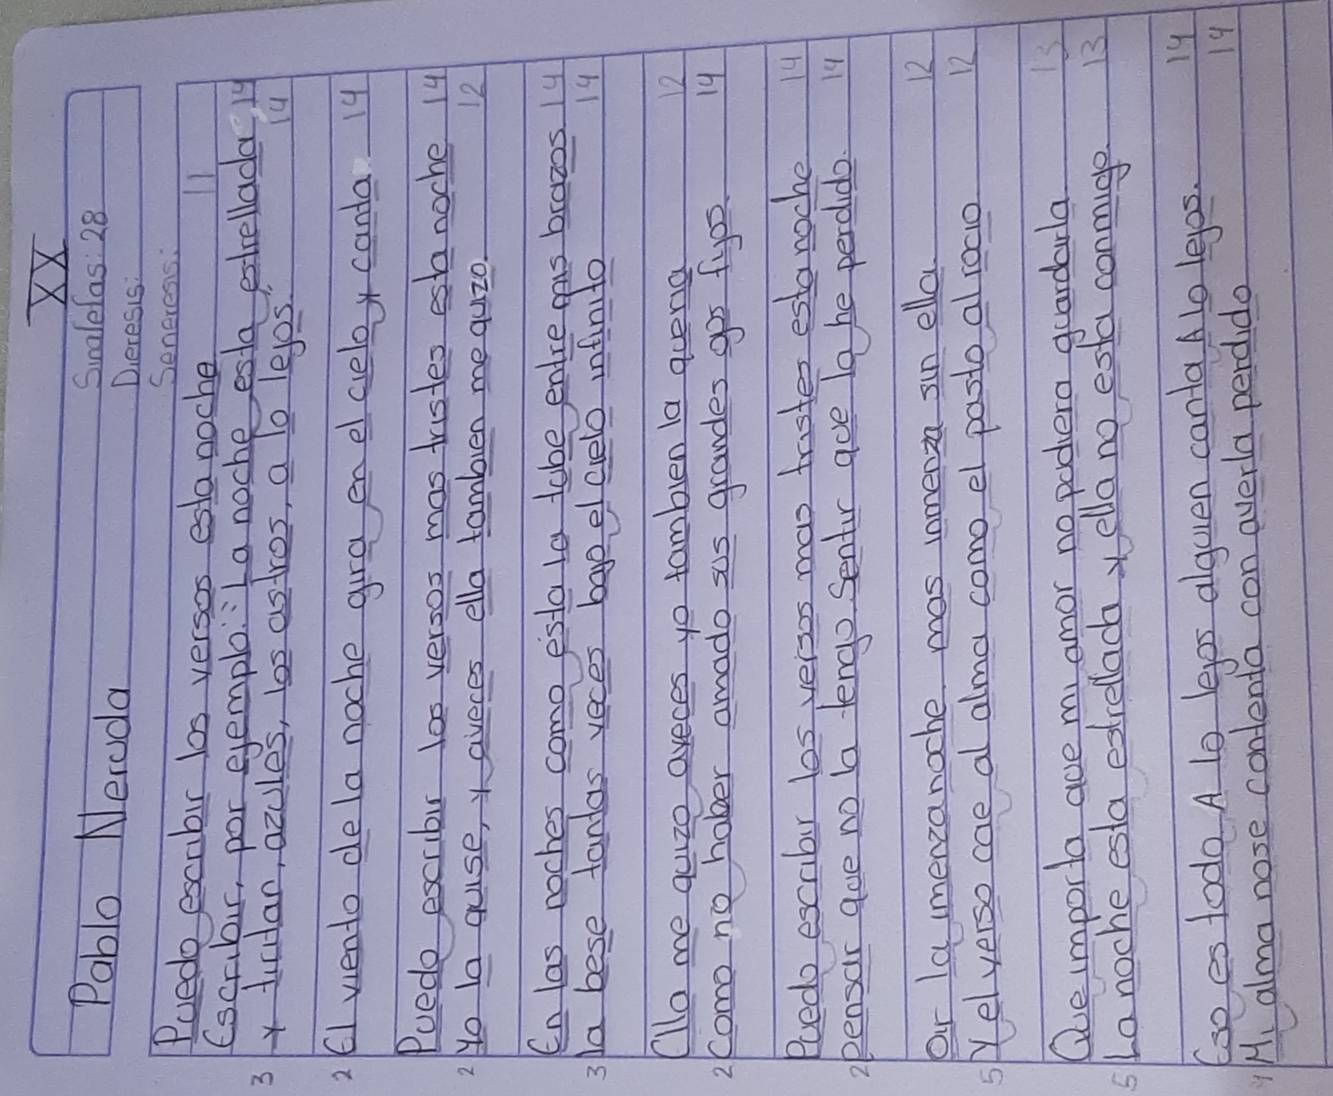 XX
Pablo Neruda
Sinalefas: 28
Dieresis:
Seneresis:
Puedo escribir los versos esta noche 11
Escribir, por ejemplo: La noche esta estrellada, 14
3 y tiritan, azules, los astros, a lo lejos. 14
2 El viento de la noche gira en el cielo y canta. 14
Puedo escribir los versos mas tristes esta noche 14
2 Yo la quise, y aveces ella tambien me quizo. 12
En las noches como ésta la tube entre mis brazos 14
3 la bese tantas veces bajo el cielo infinito 14
Ella me quizo aveces yo tambien la queria 12
2 Como no haber amado sus grandes ojos fijos. 14
Puedo escribir los versos mas tristes esta noche 14
2 pensar que no la tengo. Sentir que la he perdido. 14
Oir la imenzanoche, mas imenza sin ella. 12
5 Y el verso cae al alma como el pasto al rocio 12
Que importa que mi amor no pudiera guardarla. 13
5 La noche esta estrellada y ella no esta conmigo. 13
Eso es todo A lo lejos alguien canta A lo lejos. 14
4 Mi alma nose contenta con averla perdido 14